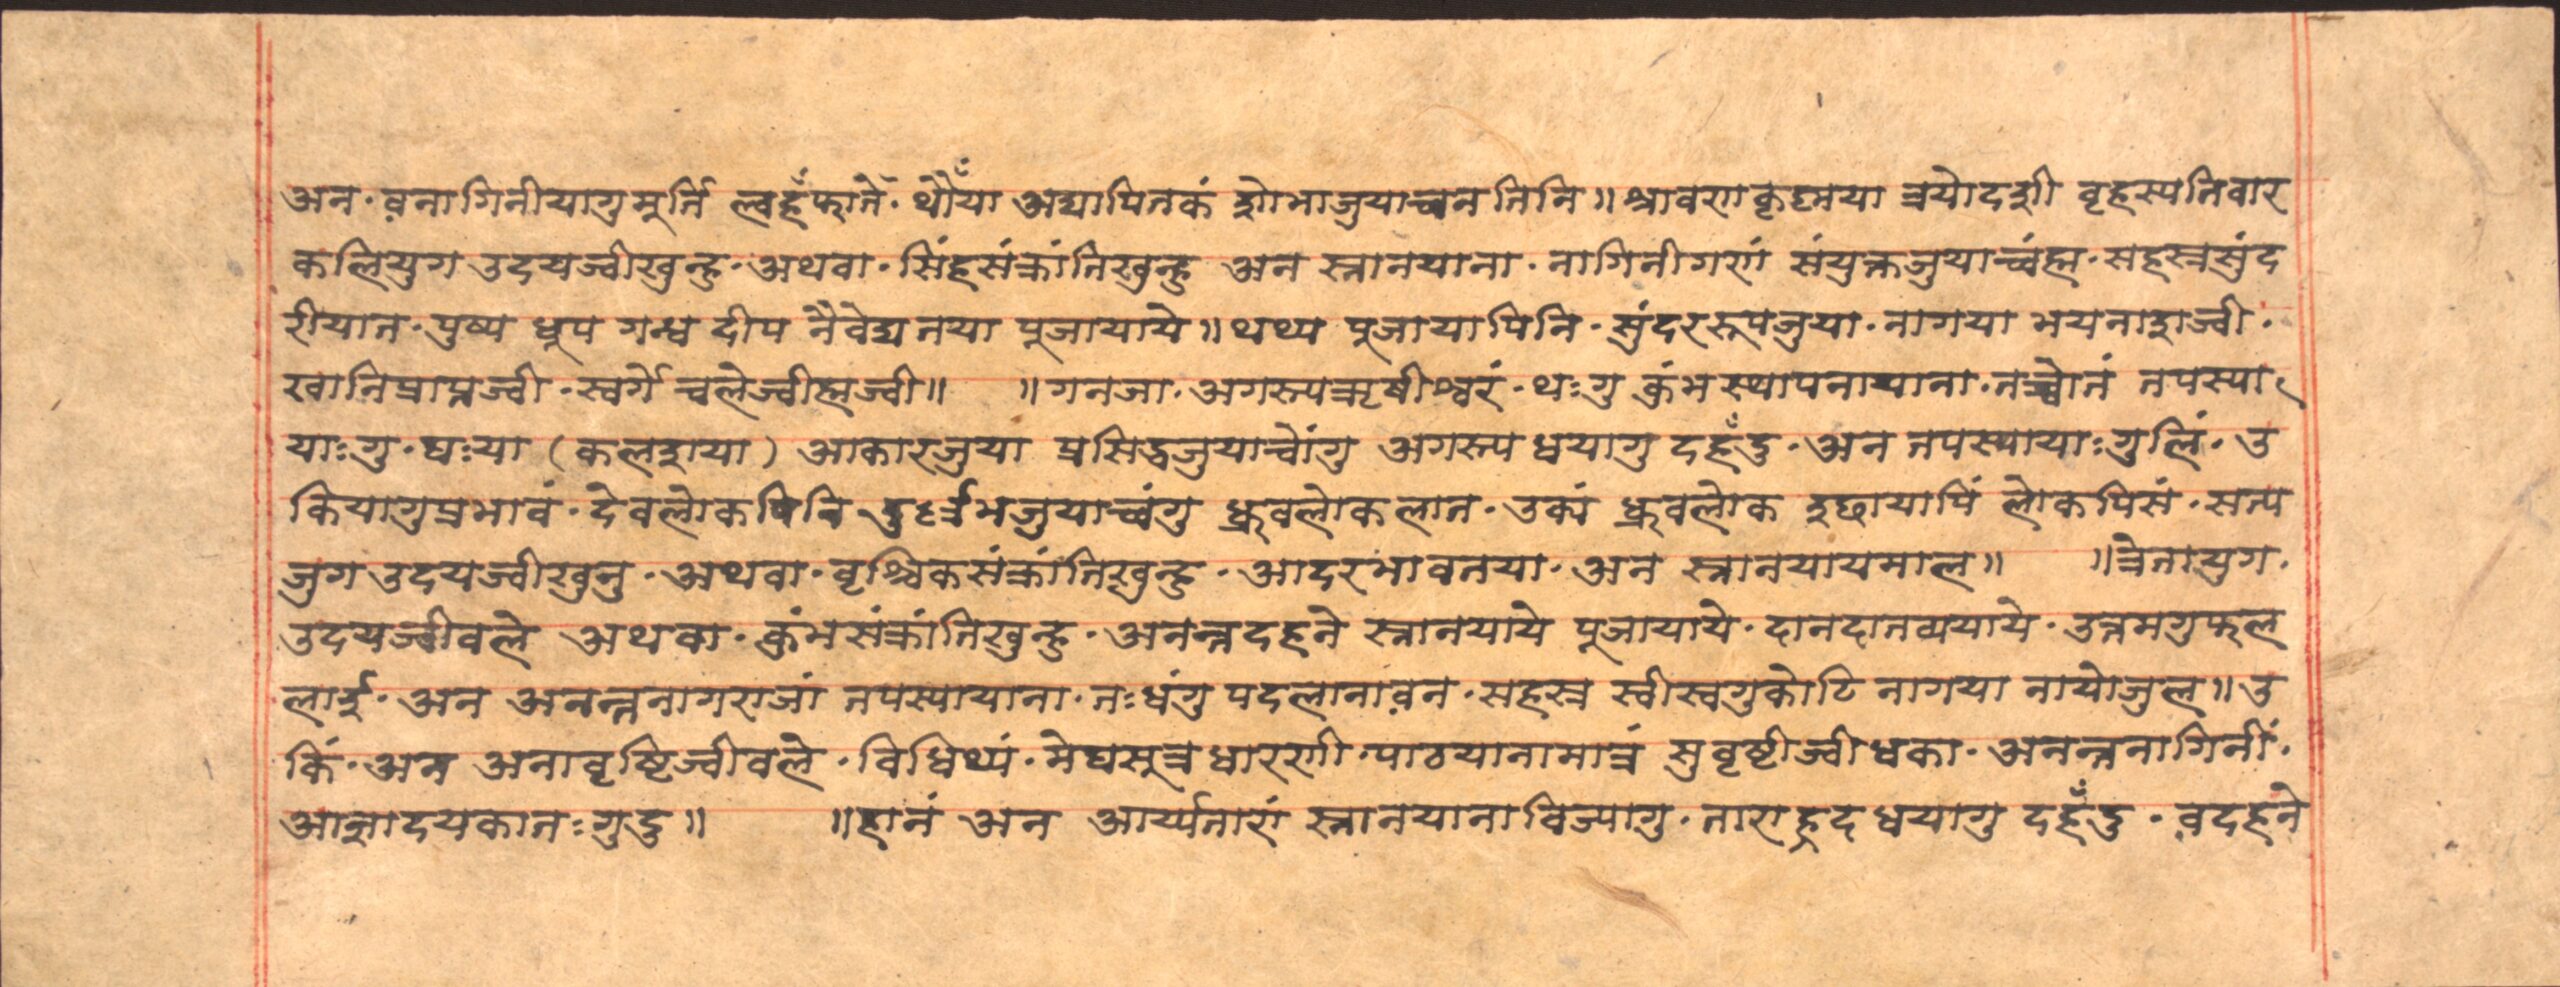 अन·व़नागिनीयागु मूर्ति ल्वहँफातं·थौंया अद्यापितकं शोभाजुयाच्वन तिनि॥ श्रावणकृष्णया त्रयोदशी वृहस्पतिवार
कलियुग उदयज्वीखुन्हु·अथवा·सिंहसंक्रांतिखुन्हु अन स्नानयाना·नागिनीगणं संयुक्तजुयाच्वंह्म·सहस्रसुंद
रीयात·पुष्प धूप गन्ध दीप नैवेद्य तया पूजायाये॥ थथ्य पूजायापिनि·सुंदररूपजुया·नागया भयनाशज्वी·
खानिप्राप्तज्वी·स्वर्गे च्वलेज्वीह्मज्वी॥ ॥ गनजा·अगस्त्यऋषीश्वरं·थःगु कुंभस्थापनायाना·तच्वोतं तपस्या
याःगु·घःया (कलशया) आकारजुया प्रसिद्धजुयाच्वोंगु अगस्त्य धयागु दहँदु·अन तपस्यायाःगुलिं·उ
कियागुप्रभावं·देवलोकपिनि दुर्ल्लभजुयाच्वंगु ध्रुवलोकलात·उक्यं ध्रुवलोक इछायापिं लोकपिसं·सत्य
जुग उदयज्वीखुनु·अथवा·वृश्चिकसंक्रांतिखुन्हु·आदरभावतया·अन स्नानयायमाल॥ ॥त्रेतायुग·
उदयज्वीवले अथवा·कुंभसंक्रांतिखुन्हु·अनन्तदहने स्नानयाये पूजायाये·दानदातव्ययाये·उत्तमगुफल
लाई·अन अनन्तनागराजां तपस्यायाना·तःधंगु पदलानाव़न·सहस्र स्वीस्वगुकोटि नागया नायोजुल॥ उ
किं·अन अनावृष्टिज्वीवले·विधिथ्यं·मेघसूत्र धारणी·पाठयानामात्रं सुवृष्टीज्वी धका·अनन्तनागिनीं·
आज्ञादयकातःगुदु॥ ॥हानं अन आर्य्यतारां स्नानयानाविज्यागु·ताराह्रद धयागु दहँदु·व़दहने